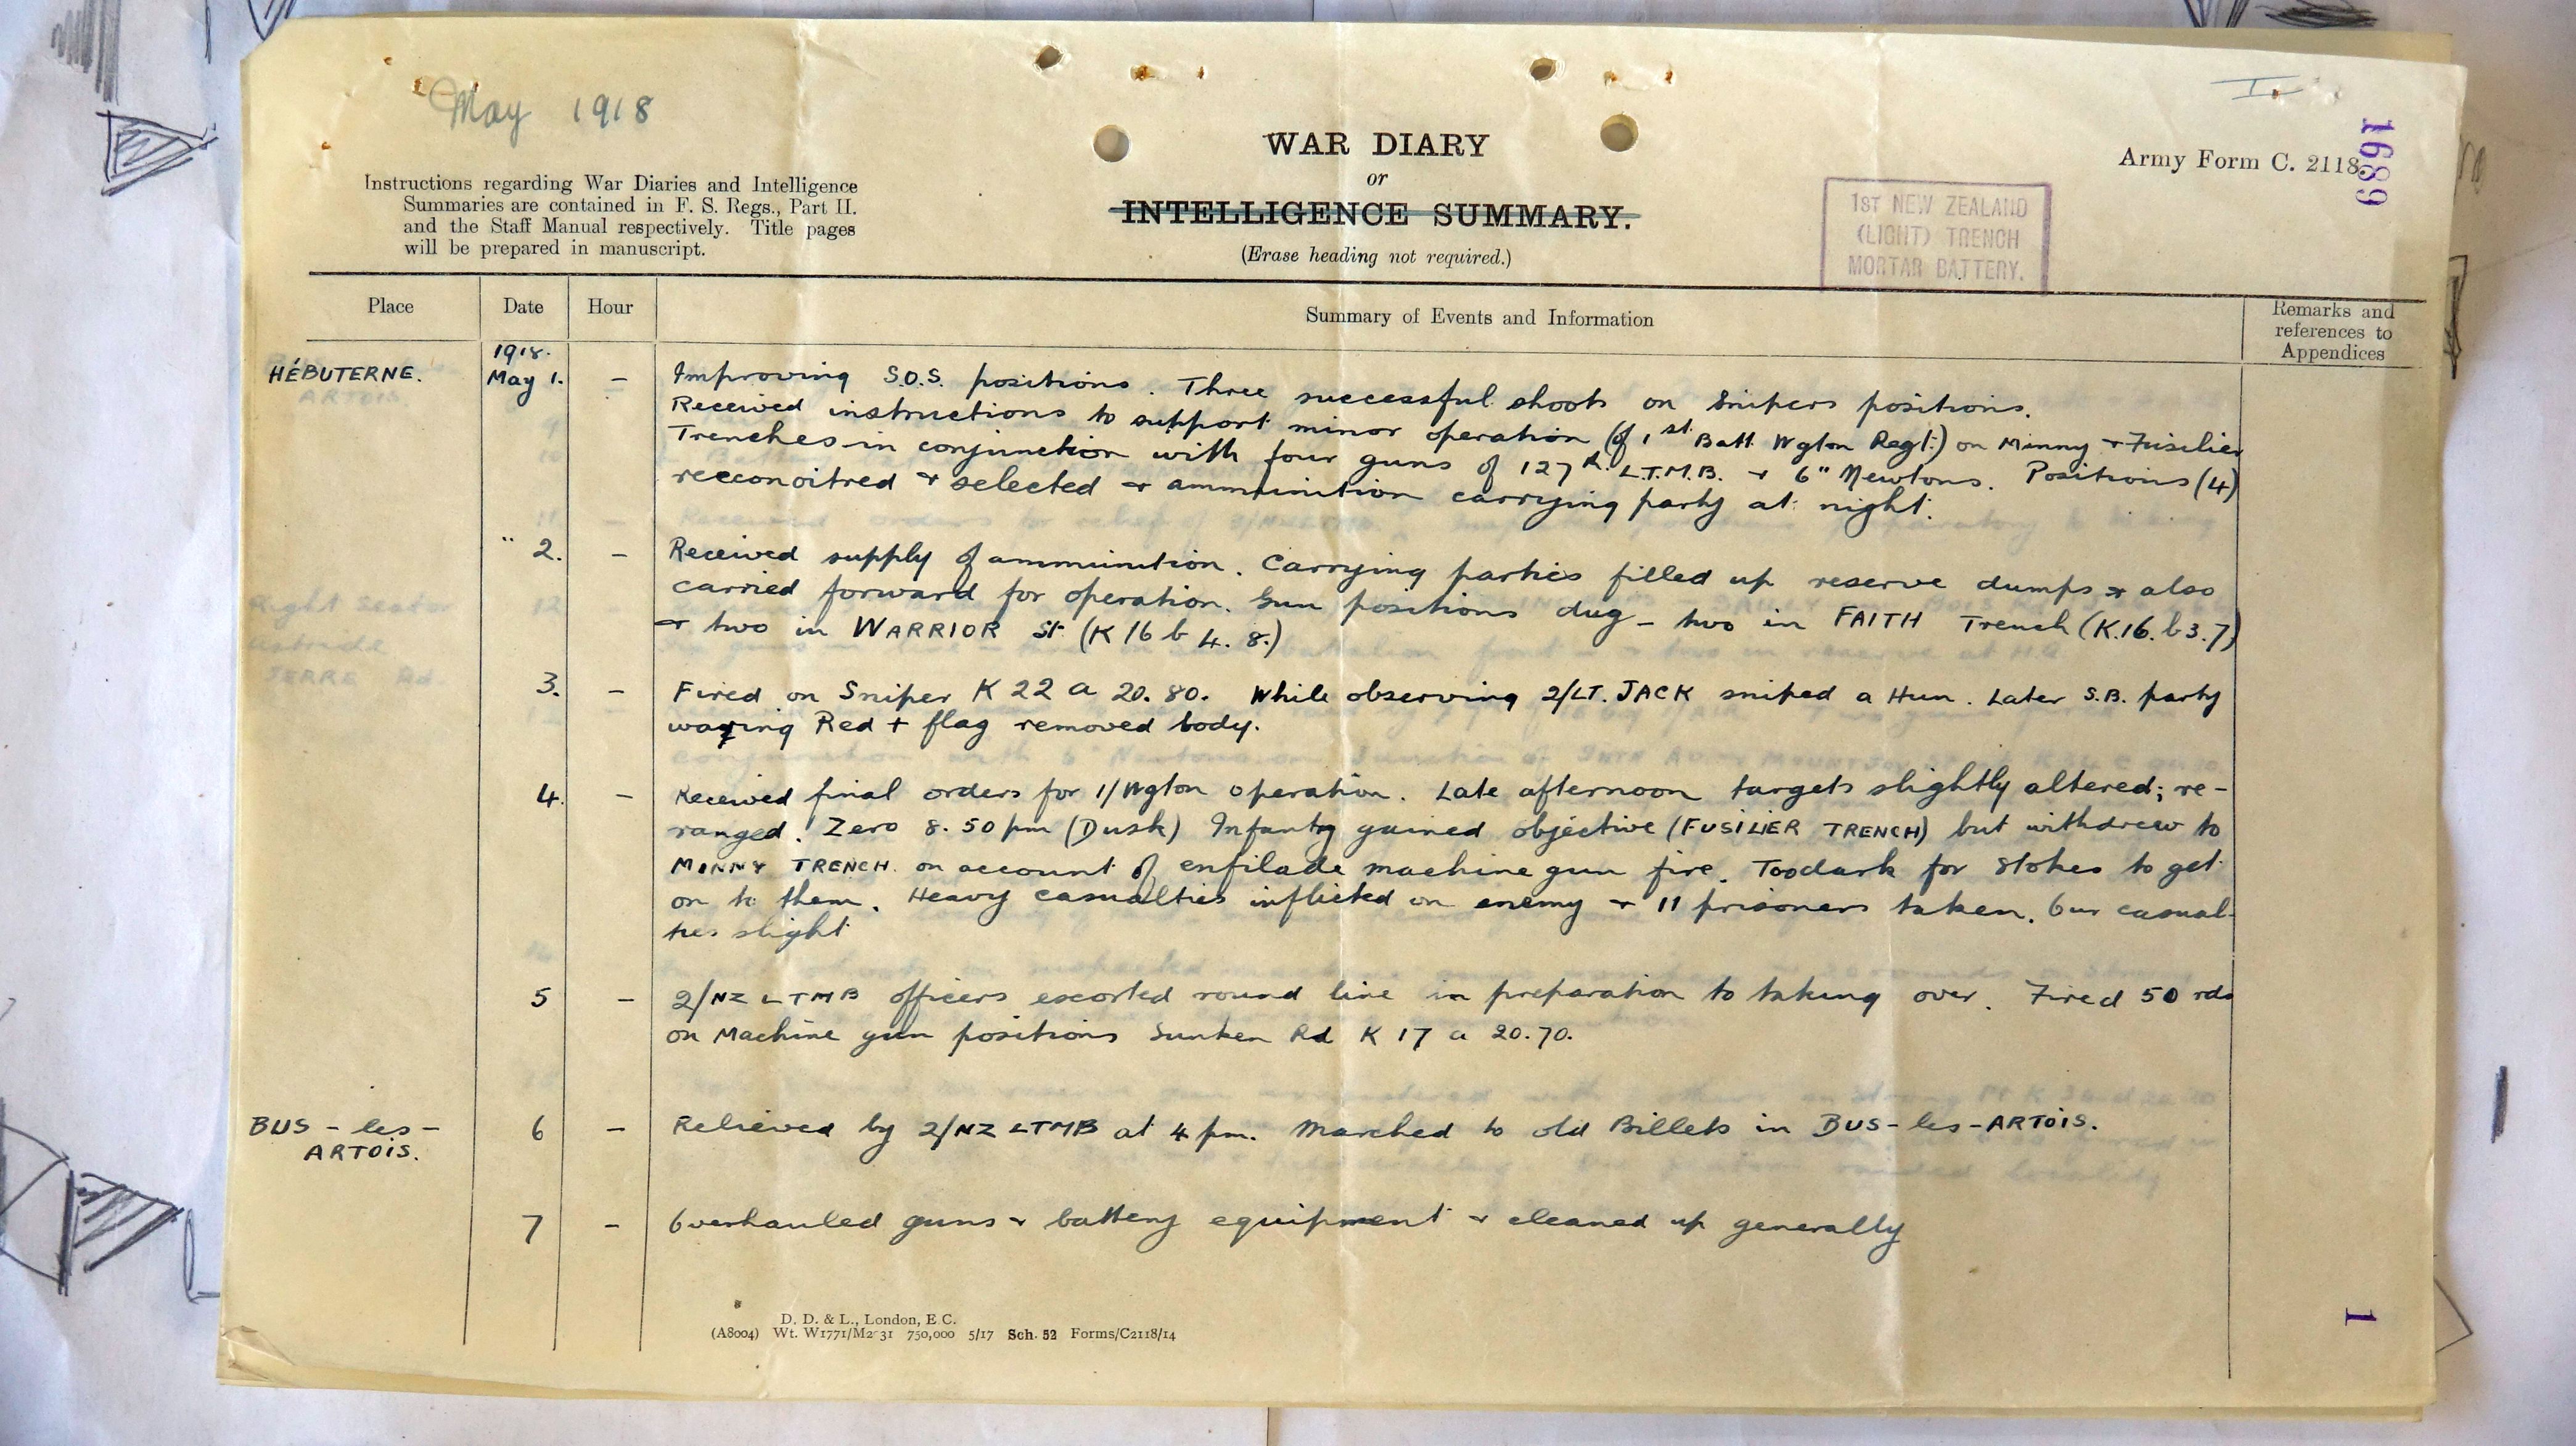 May 1918
WAR DIARY
or
INTELLIGENCE SUMMARY.
(Erase heading not required.)
Instructions regarding War Diaries and Intelligence
Summaries are contained in F. S. Regs., Part II.
and the Staff Manual respectively. Title pages
will be prepared in manuscript.
1ST NEW ZEALAND
(LIGHT) TRENCH
MORTAR BATTERY.
Army Form C. 2118.
1689
Place Date Hour Summary of Events and Information Remarks and
references to
Appendices
1918.
HÉBUTERNE. May 1. — Improving S.O.S. positions. Three successful shoots on Snipers positions.
Received instructions to support minor operation (of 1st Batt Wgton Regt.) on Minny + Fusilier
Trenches in conjunction with four guns of 127th. L.T.M.B. + 6" Newtons. Positions (4)
recconoitred + selected + ammunition carrying party at night.
" 2. — Received supply of ammunition. Carrying parties filled up reserve dumps + also
carried forward for operation. Gun positions dug — two in FAITH Trench (K.16.b3.7)
+ two in WARRIOR St (K 16 b 4.8.)
3. — Fired on Sniper K 22 a 20.80. While observing 2/LT. JACK sniped a Hun. Later S.B. party
waving Red + flag removed body.
4. — Received final orders for 1/Wgton operation. Late afternoon targets slightly altered; re-
ranged. Zero 8.50 pm (Dusk) Infantry gained objective (FUSILIER TRENCH) but withdrew to
MINNY TRENCH on account of enfilade machine gun fire. Too dark for Stokes to get
on to them. Heavy casualties inflicted on enemy + 11 prisoners taken. Our casual-
ties slight
5 — 2/NZ LTMB officers escorted round line in preparation to taking over. Fired 50 rds
on Machine gun positions Sunken Rd K 17 a 20.70.
BUS - les - 6 — Relieved by 2/NZ LTMB at 4 pm. Marched to old Billets in BUS-les-ARTOIS.
ARTOIS.
7 — Overhauled guns + battery equipment + cleaned up generally
D. D. & L., London, E.C.
(A8004) Wt. W1771/M2 31 750,000 5/17 Sch. 52 Forms/C2118/14
1